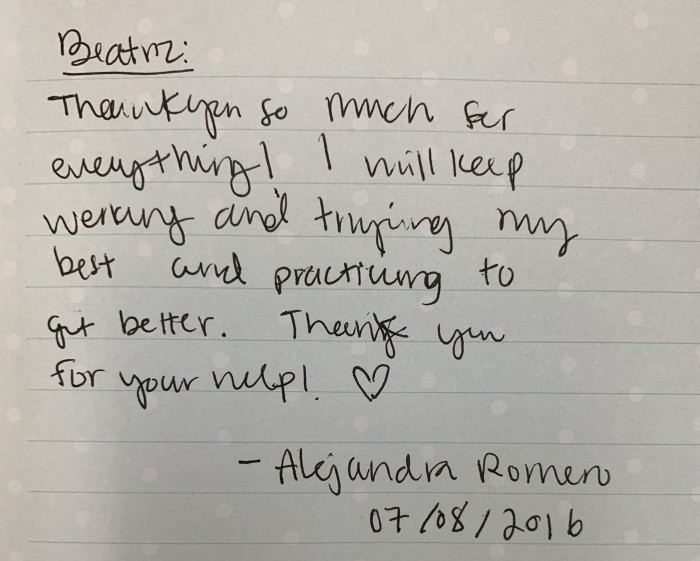 Beatriz:
Thank you so much for
everything! I will keep
working and trying my
best and practicing to
get better. Thank you
for your help! ♡
- Alejandra Romero
07/08/2016